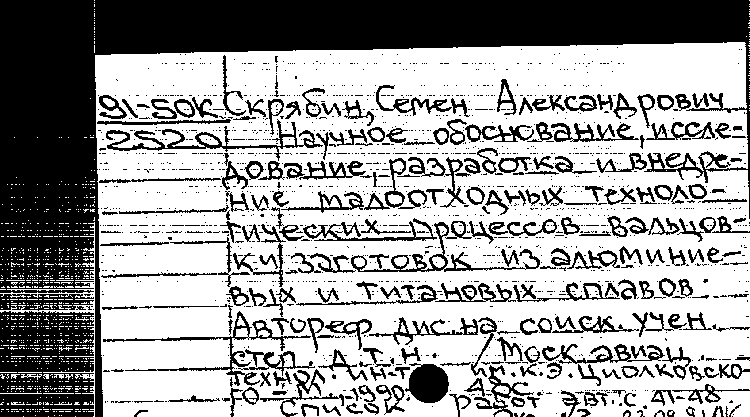 91-50К Скрябин, Семен Александрович
2520 Научное обоснование, иссле-
дование, разработка и внедре-
ние малоотходных техноло-
гических процессов вальцов-
ки заготовок из алюминие-
вых и титановых сплавов:
Автореф. дис. на соиск. учен.
степ. д.т.н. / Моск. авиац.
технол. ин-т им. К.Э. Циолковско-
го - М., 1990. 48с
Список работ авт.: с. 41-48